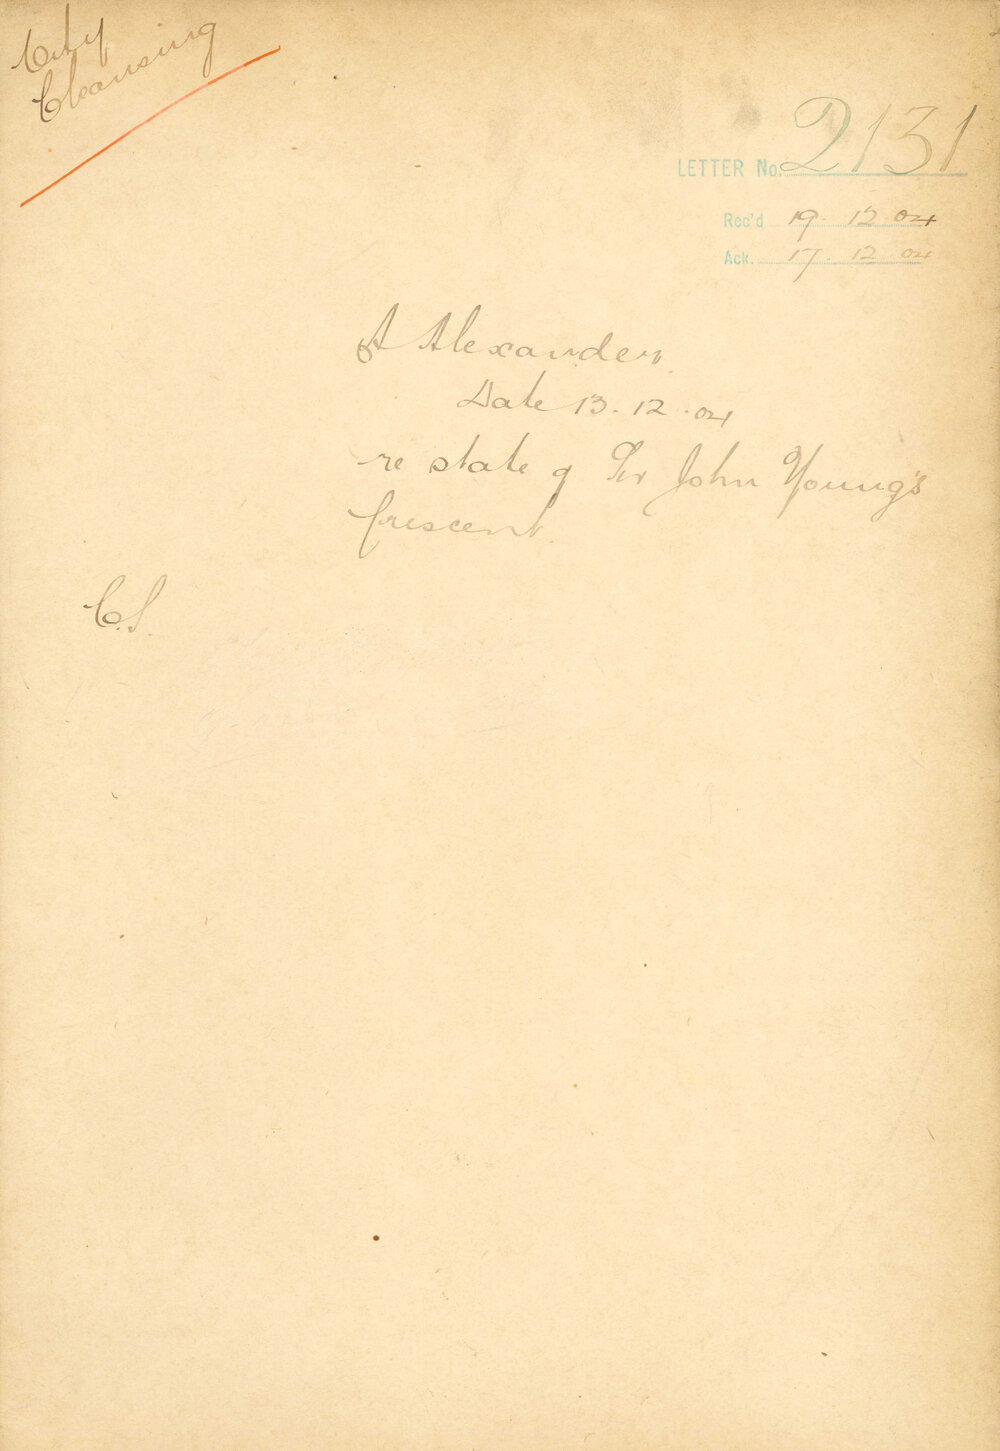 City
Cleansing
LETTER No. 2131
Rec'd 19. 12 04
Ack. 17. 12 04
A Alexander.
Date 13. 12. 04
re state of Sir John Young's
Crescent.
C.S.